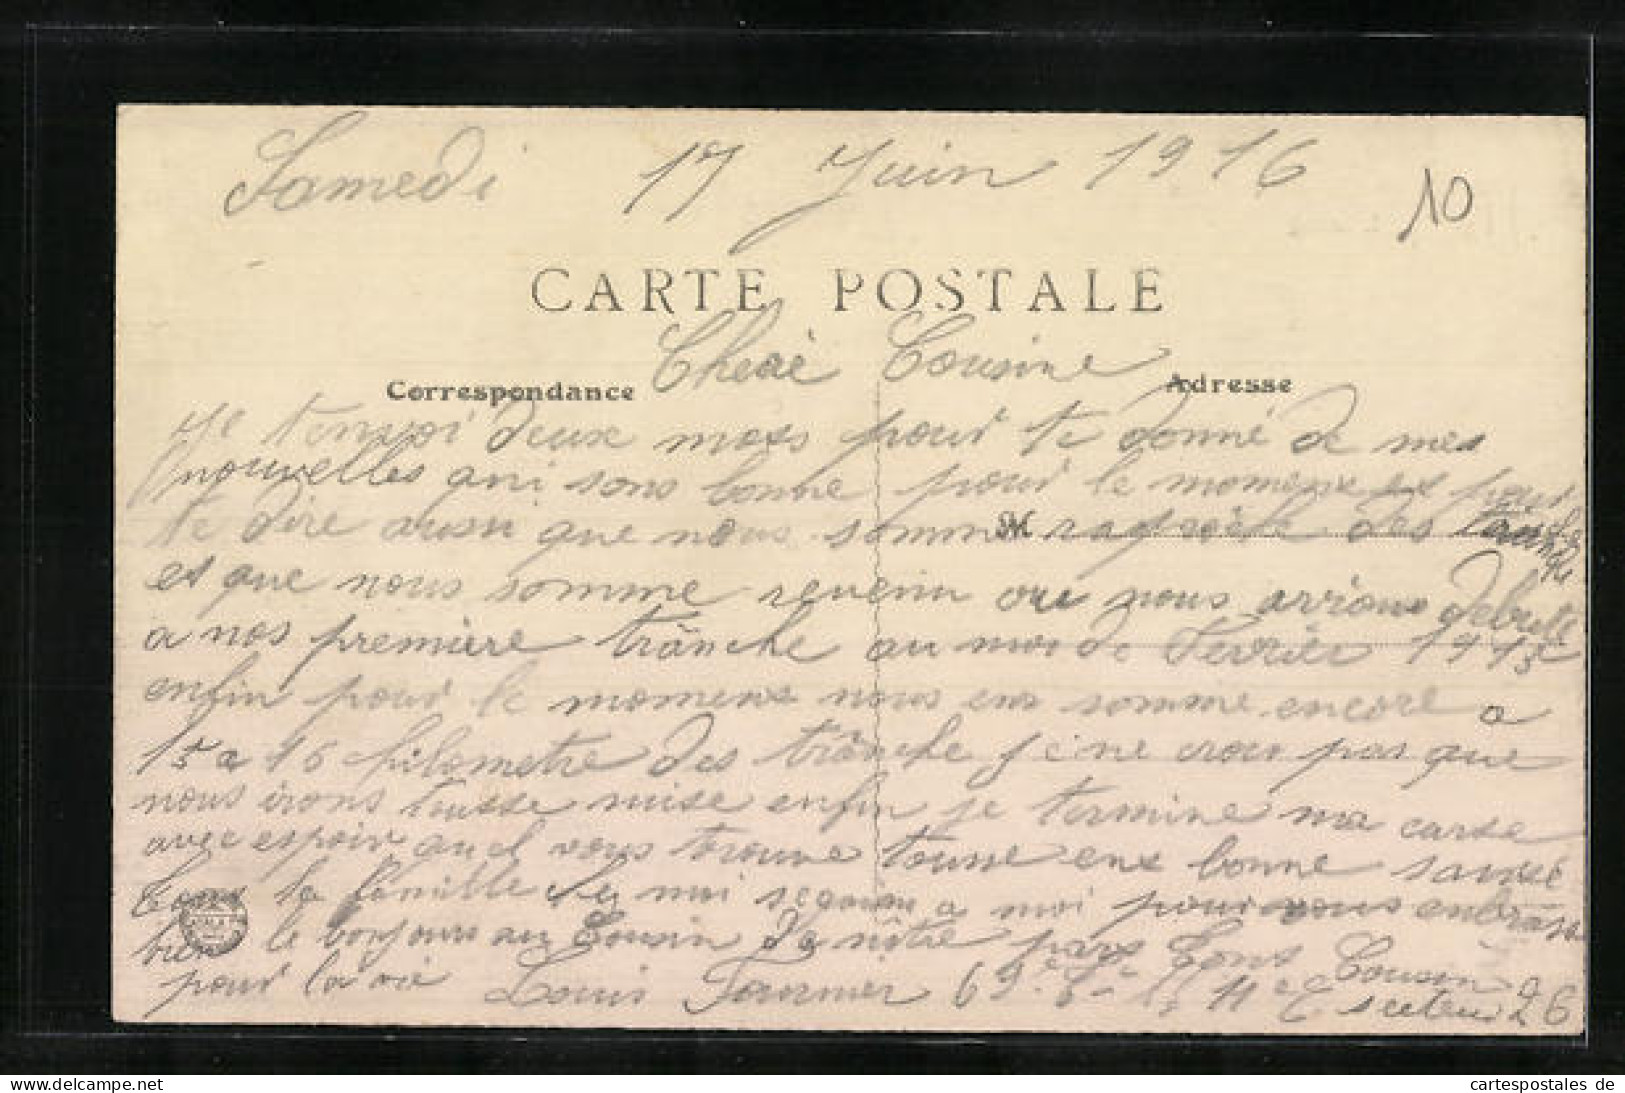 Samedi 17 Juin 1916
10
CARTE POSTALE
Cheai Cousine
Correspondance
Adresse
Je tenvoi deux mots pour te donné de mes
nouvelles qui sons bonne pour le momens et pour
te dire aussi que nous somme M raproché des tranche
et que nous somme revenu ou nous avrions debuté
a nos première trânche au moi de Fevrier 1915
enfin pour le momens nous ens somme encore a
15 a 16 kilometre des trânche je ne crois pas que
nous irons tusse suise enfin je termine ma carte
avec espoir quel vous trouve tousse ens bonne sansé
tous la famille chez moi a moi pour vous enbrasé
bien le bonjour au Cousin de nôtre pars Tons Cousin
pour la vie Louis Fournier 69e 11e Cie secteur 26
cartespostales de